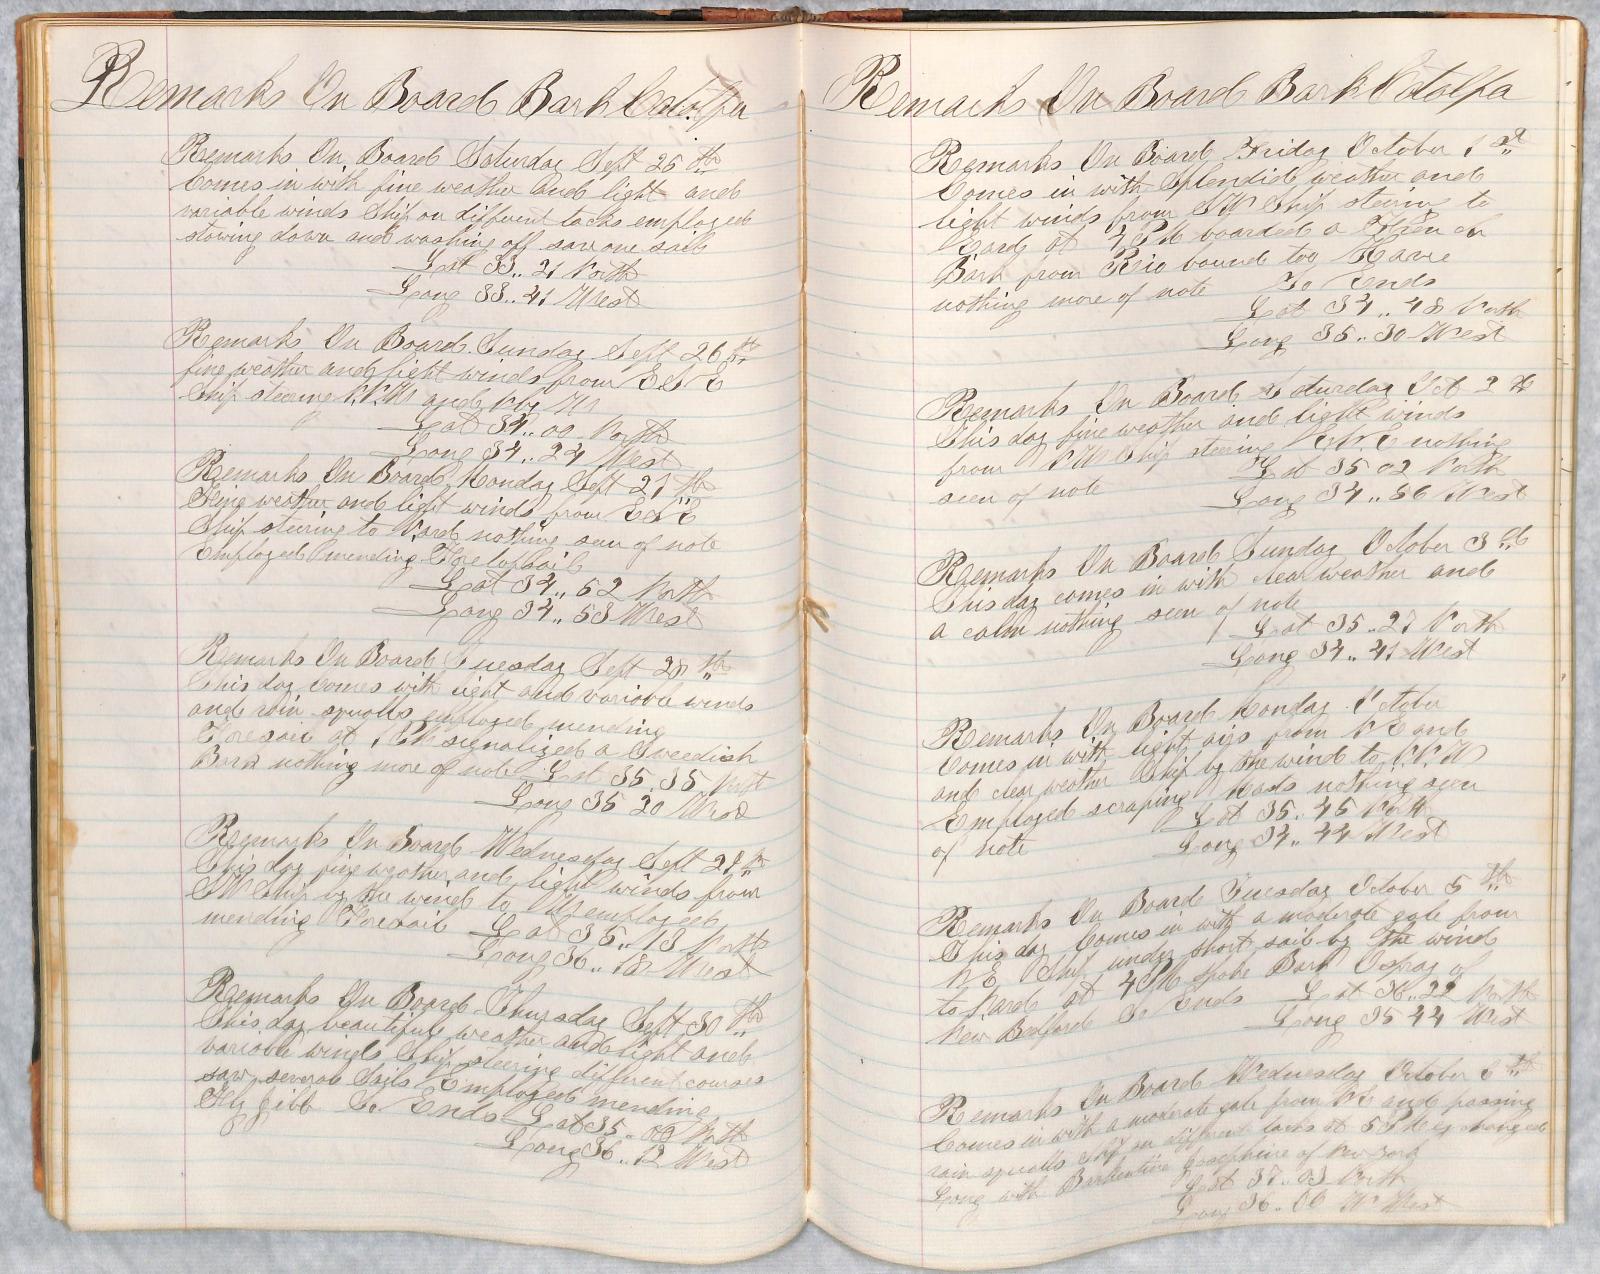 Remarks On Board Bark Catalpa
Remarks On Board Saturday Sept 25th
Comes in with fine weather and light and
variable winds Ship on different tacks employed
stowing down and washing off saw one sail
Lat 33,, 21 North
Long 33,, 41 West
Remarks On Board Sunday Sept 26th
fine weather and light winds from ESE
Ship steering N.N.W and N by W
Lat 34,, 00 North
Long 34,, 24 West
Remarks On Board Monday Sept 27th
Fine weather and light winds from ESE
Ship steering to N.ard nothing seen of note
Employed mending Foretopsail
Lat 34,, 52 North
Long 34,, 53 West
Remarks On Board Tuesday Sept 28th
This day Comes with light and variable winds
and rain squalls employed mending
Foresail at 1 PM signalized a Sweedish
Bark nothing more of note Lat 35,35 North
Long 35 20 West
Remarks On Board Wednesday Sept 29th
This day fine weather and light winds from
SW Ship by the wind to employed
mending Foresail Lat 35,, 13 North
Long 36,, 18 West
Remarks On Board Thursday Sept 30th
This day beautiful weather and light and
variable winds Ship steering different courses
saw several Sails Employed mending
Fly Jibb So Ends Lat 35,, 09 North
Long 36,, 12 West
Remarks On Board Bark Catalpa
Remarks On Board Friday October 1st
Comes in with Splendid weather and
light winds from SW Ship steering to
Eard at PM boarded a French
Bark from Rio bound too Havre
nothing more of note So Ends
Lat 34,, 48 North
Long 35,, 30 West
Remarks On Board Saturday Oct 2
This day fine weather and light winds
from Ship steering nothing
seen of note Lat 35 02 North
Long 34,, 56 West
Remarks On Board Sunday October 3rd
This day comes in with clear weather and
a calm nothing seen of note
Lat 35,, 27 North
Long 34,, 41 West
Remarks On Board Monday October
Comes in with light airs from NE and
and clear weather Ship by the wind to N.N.W
Employed scraping nothing seen
of note Lat 35,, 45 North
Long 34,, 44 West
Remarks On Board Tuesday October 5th
This day Comes in with a moderate gale from
N.E Ship under short sail by the wind
to Nard at 4 PM spoke Bark Osprey of
New Bedford So Ends Lat 36,, 22 North
Long 35 44 West
Remarks On Board Wednesday October 6th
Comes in with a moderate gale from NE and passing
rain squalls Ship on different tacks at 5 PM exchanged
Long with Barkentine Josephine of New York
Lat 37,, 03 North
Long 36,, 00 West